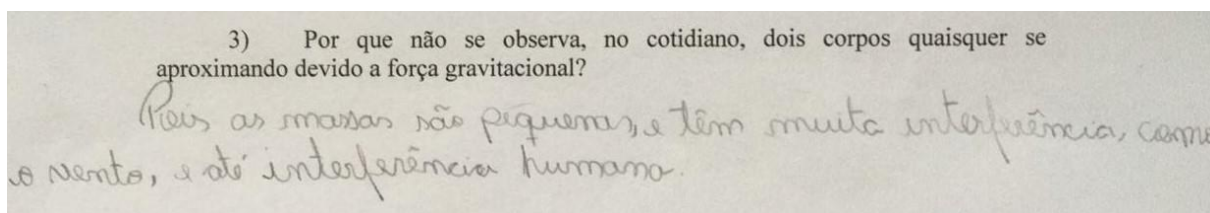 3) Por que não se observa, no cotidiano, dois corpos quaisquer se
aproximando devido a força gravitacional?
Pois as massas são pequenas, e têm muita interferência, como
o vento, e até interferência humana.